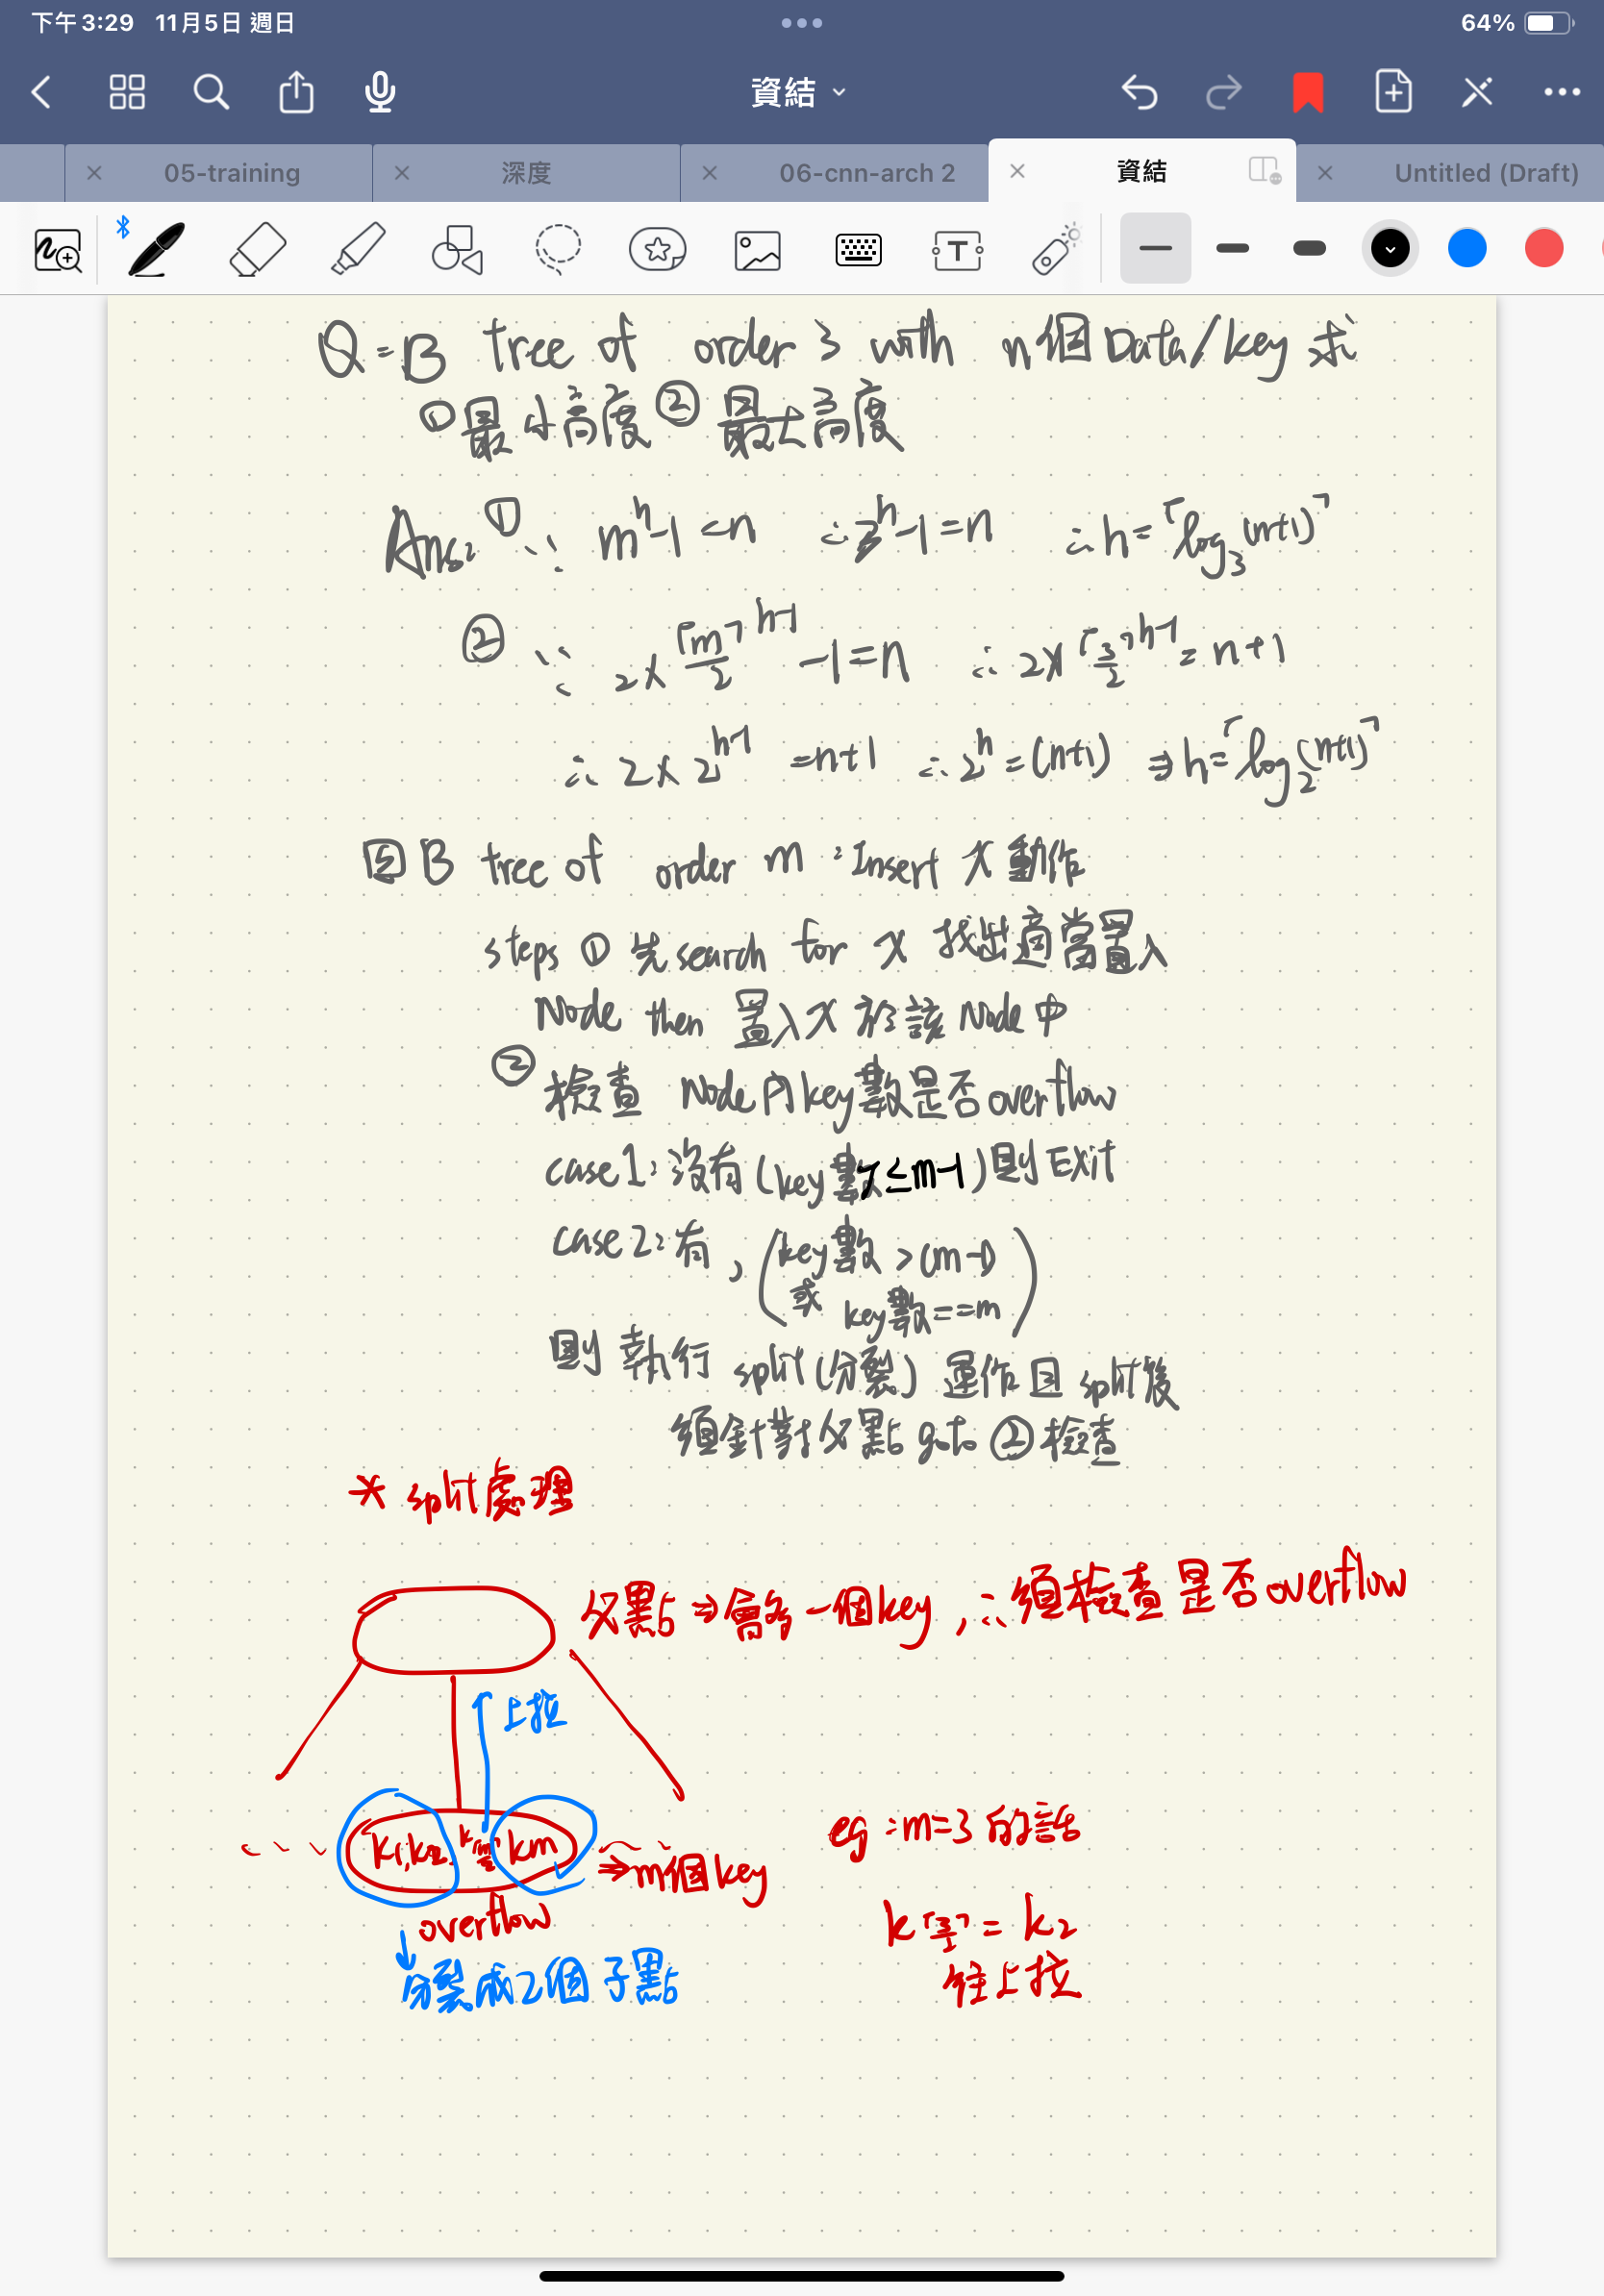 下午3:29 11月5日 週日
64%
資結
05-training
深度
06-cnn-arch 2
資結
Untitled (Draft)
Q = B tree of order 3 with n個Data/key 求
①最小高度 ②最大高度
Ans: ① ∵ m^h-1=n ∴3^h-1=n ∴h=⌈log₃(n+1)⌉
② ∵ 2×⌈m/2⌉^(h-1) -1=n ∴2×⌈3/2⌉^(h-1) = n+1
∴ 2×2^(h-1) =n+1 ∴2^h=(n+1) ⇒h=⌈log₂(n+1)⌉
5 B tree of order m:Insert X動作
steps ① 先search for X 找出適當置入
Node then 置入X於該Node中
② 檢查 Node內key數是否overflow
case1:沒有(key數≤m-1)則EXit
case2:有,(key數>(m-1)
或 key數==m)
則執行 split(分裂) 運作且split後
須針對父點 goto ②檢查
* split處理
父點⇒會多一個key,∴須檢查是否overflow
上拉
k1,k2.k⌈m/2⌉ km ⇒m個key
overflow
分裂成2個子點
eg:m=3的話
k⌈3/2⌉=k2
往上拉